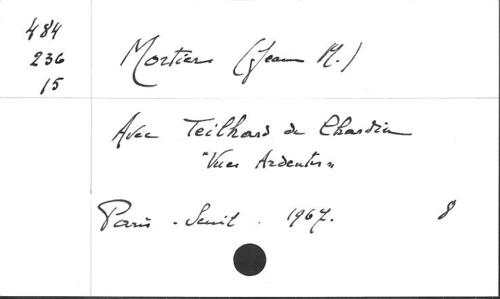 484
236
15
Mortier (Jeanne M.)
Avec Teilhard de Chardin
"Vues Ardentes"
Paris - Seuil - 1967.
8